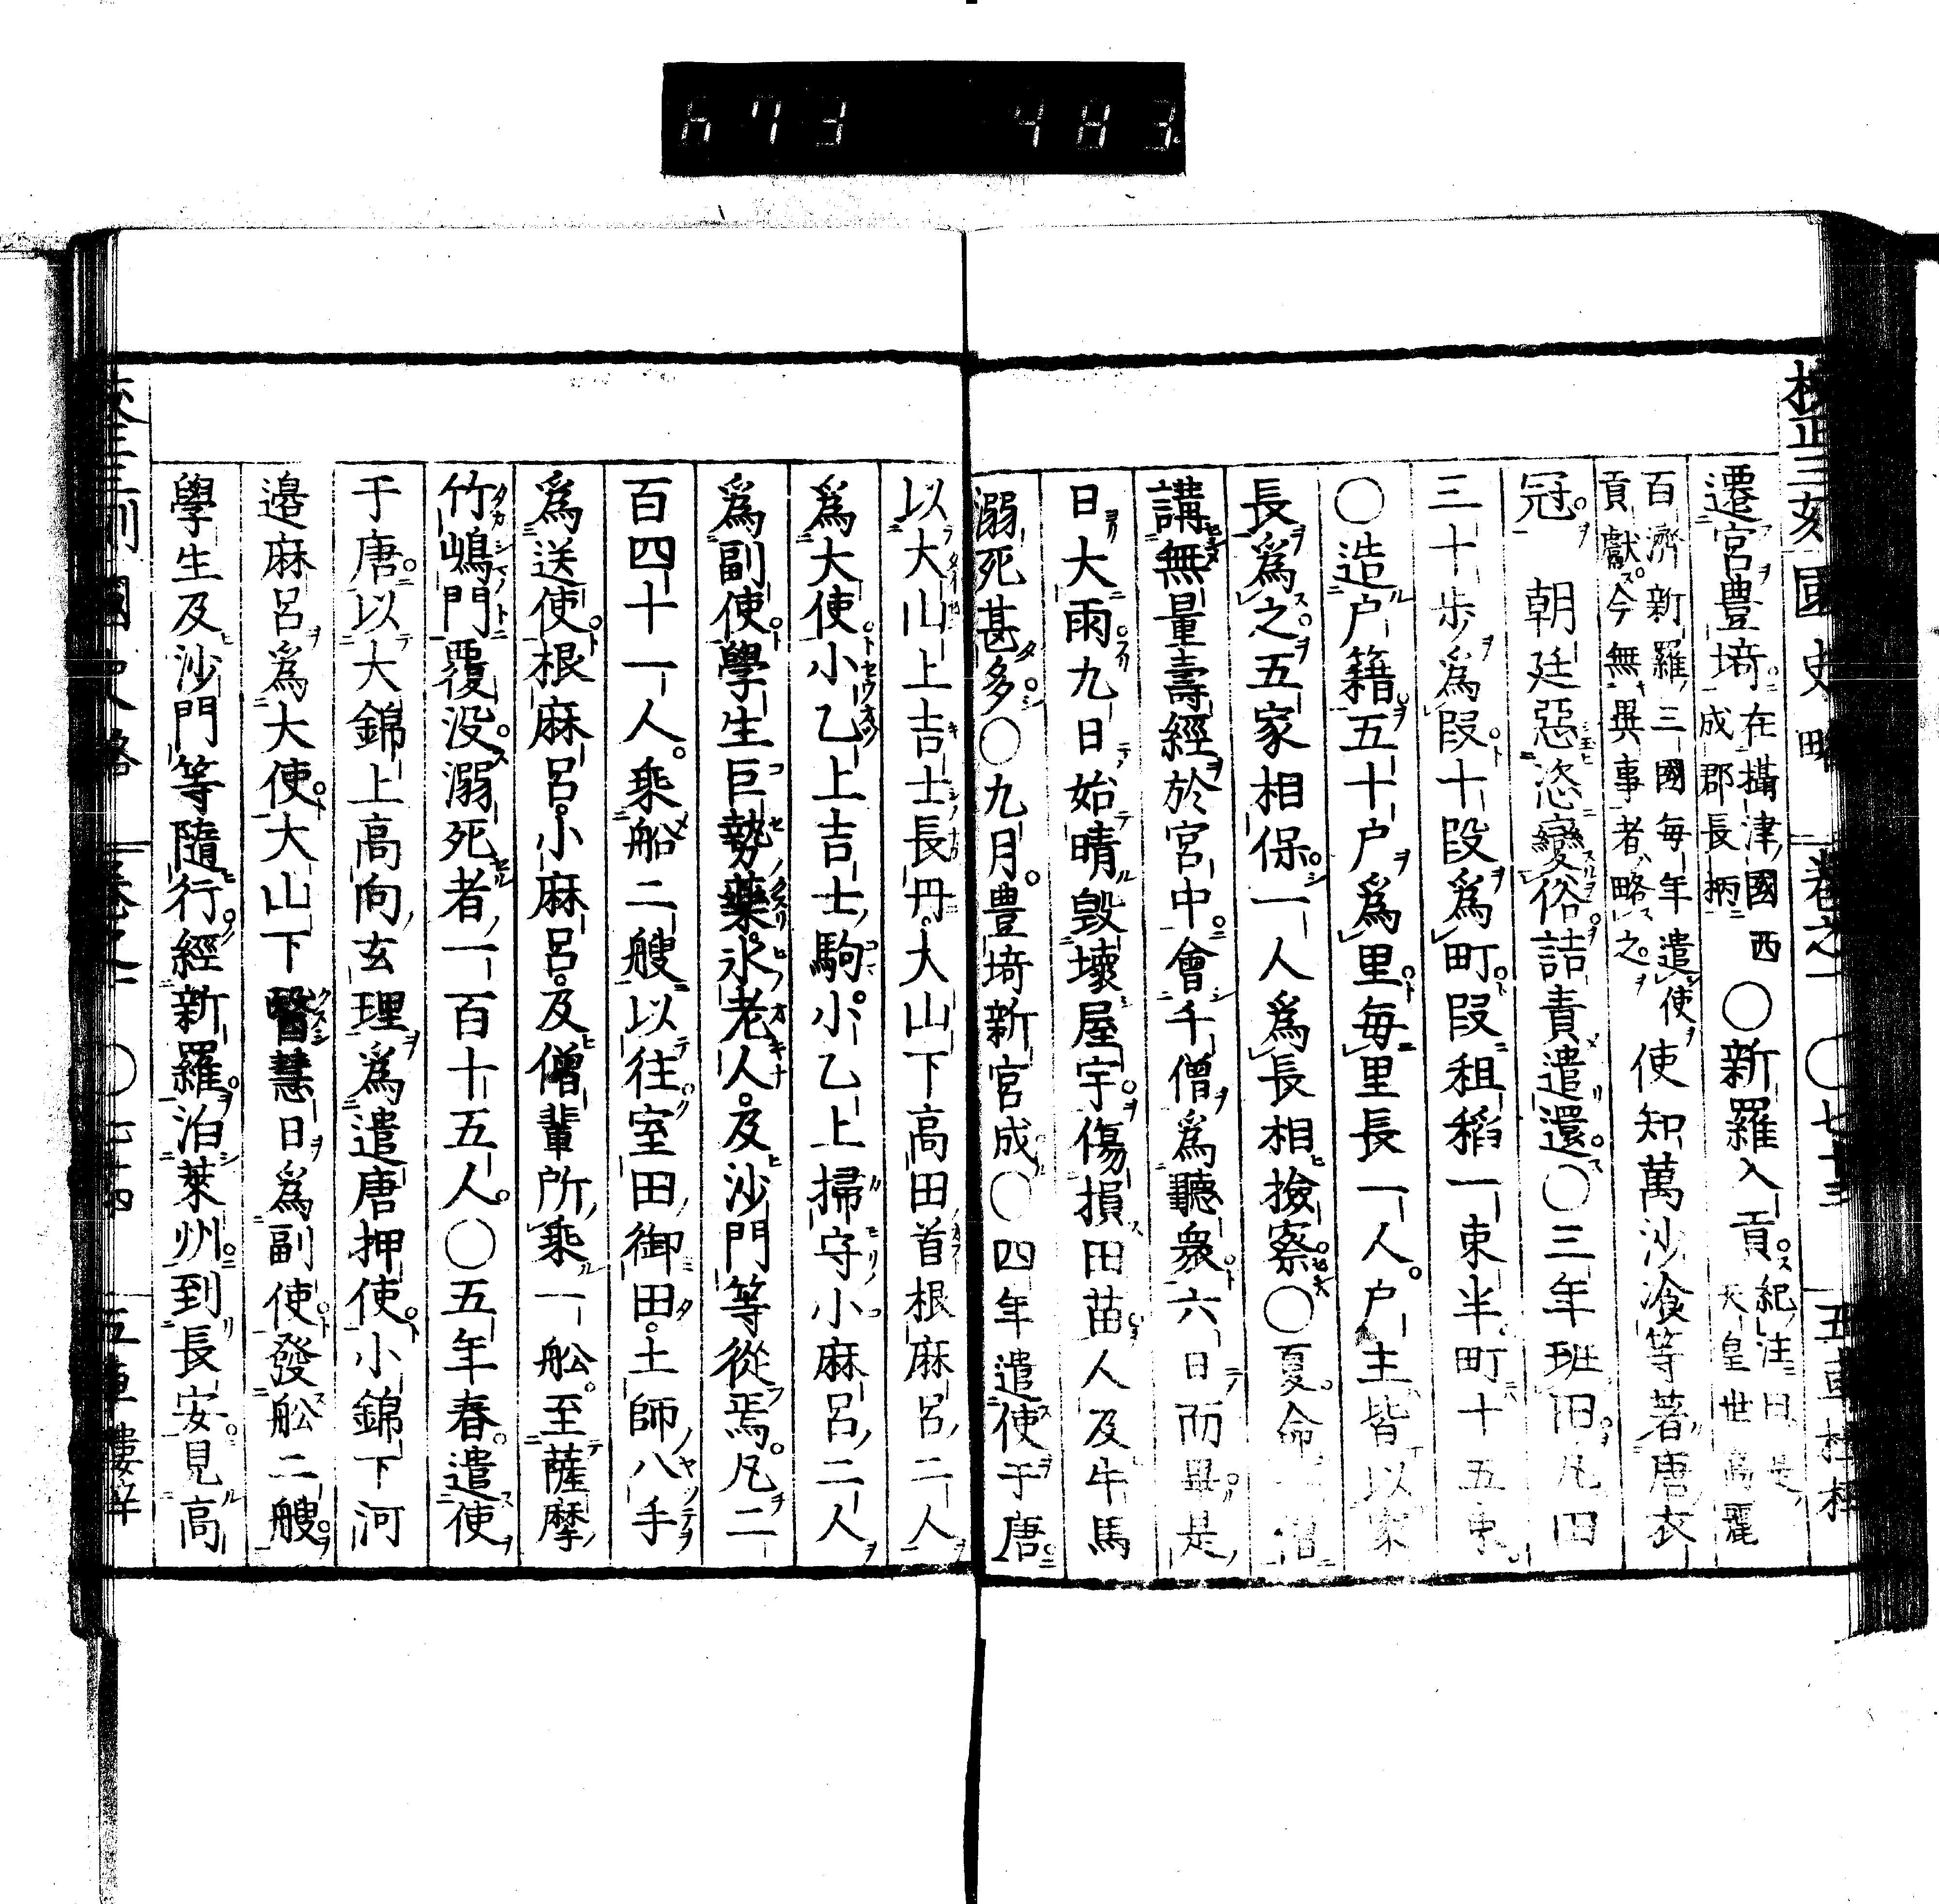 673 483
校正三刻國史略 卷之一 ○七十三 五車樓梓
遷宮豊埼在攝津國西成郡長柄○新羅入貢紀注曰是天皇世高麗
百濟新羅三國毎年遣使貢獻今無異事者略之使知萬沙飡等著唐衣
冠 朝廷惡恣變俗詰責遣還○三年班田凡四
三十歩爲段十段爲町段租稻一束半町十五束
○造户籍五十户爲里毎里長一人户主皆以家
長爲之五家相保一人爲長相撿察○夏命 僧
講無量壽經於宮中會千僧爲聽衆六日而畢是
日大雨九日始晴毀壞屋宇傷損田苗人及牛馬
溺死甚多○九月豊埼新宮成○四年遣使于唐
以大山上吉士長丹大山下高田首根麻呂二人
爲大使小乙上吉士駒小乙上掃守小麻呂二人
爲副使學生巨勢藥氷老人及沙門等從焉凡二
百四十一人乘船二艘以往室田御田土師八手
爲送使根麻呂小麻呂及僧輩所乘一舩至薩摩
竹嶋門覆没溺死者一百十五人○五年春遣使
于唐以大錦上高向玄理爲遣唐押使小錦下河
邉麻呂爲大使大山下醫慧日爲副使發舩二艘
學生及沙門等隨行經新羅泊萊州到長安見高